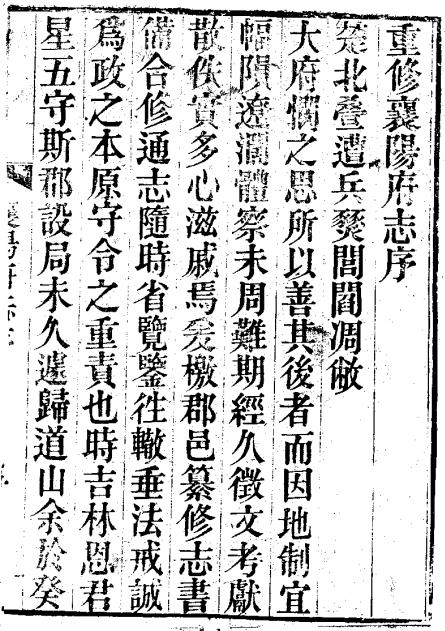 重修襄陽府志序
楚北疊遭兵燹閭閻凋敝
大府憫之思所以善其後者而因地制宜
幅隕遼濶體察未周難期經久徵文考獻
散佚實多心滋戚焉爰檄郡邑纂修志書
備合修通志隨時省覽鑒徃轍垂法戒誠
爲政之本原守令之重責也時吉林恩君
星五守斯郡設局未久遽歸道山余於癸